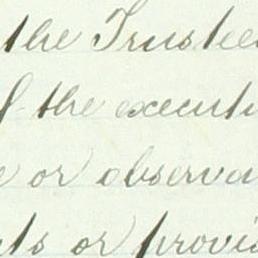 the Trustee
f the executi
e or observa
ts or provis